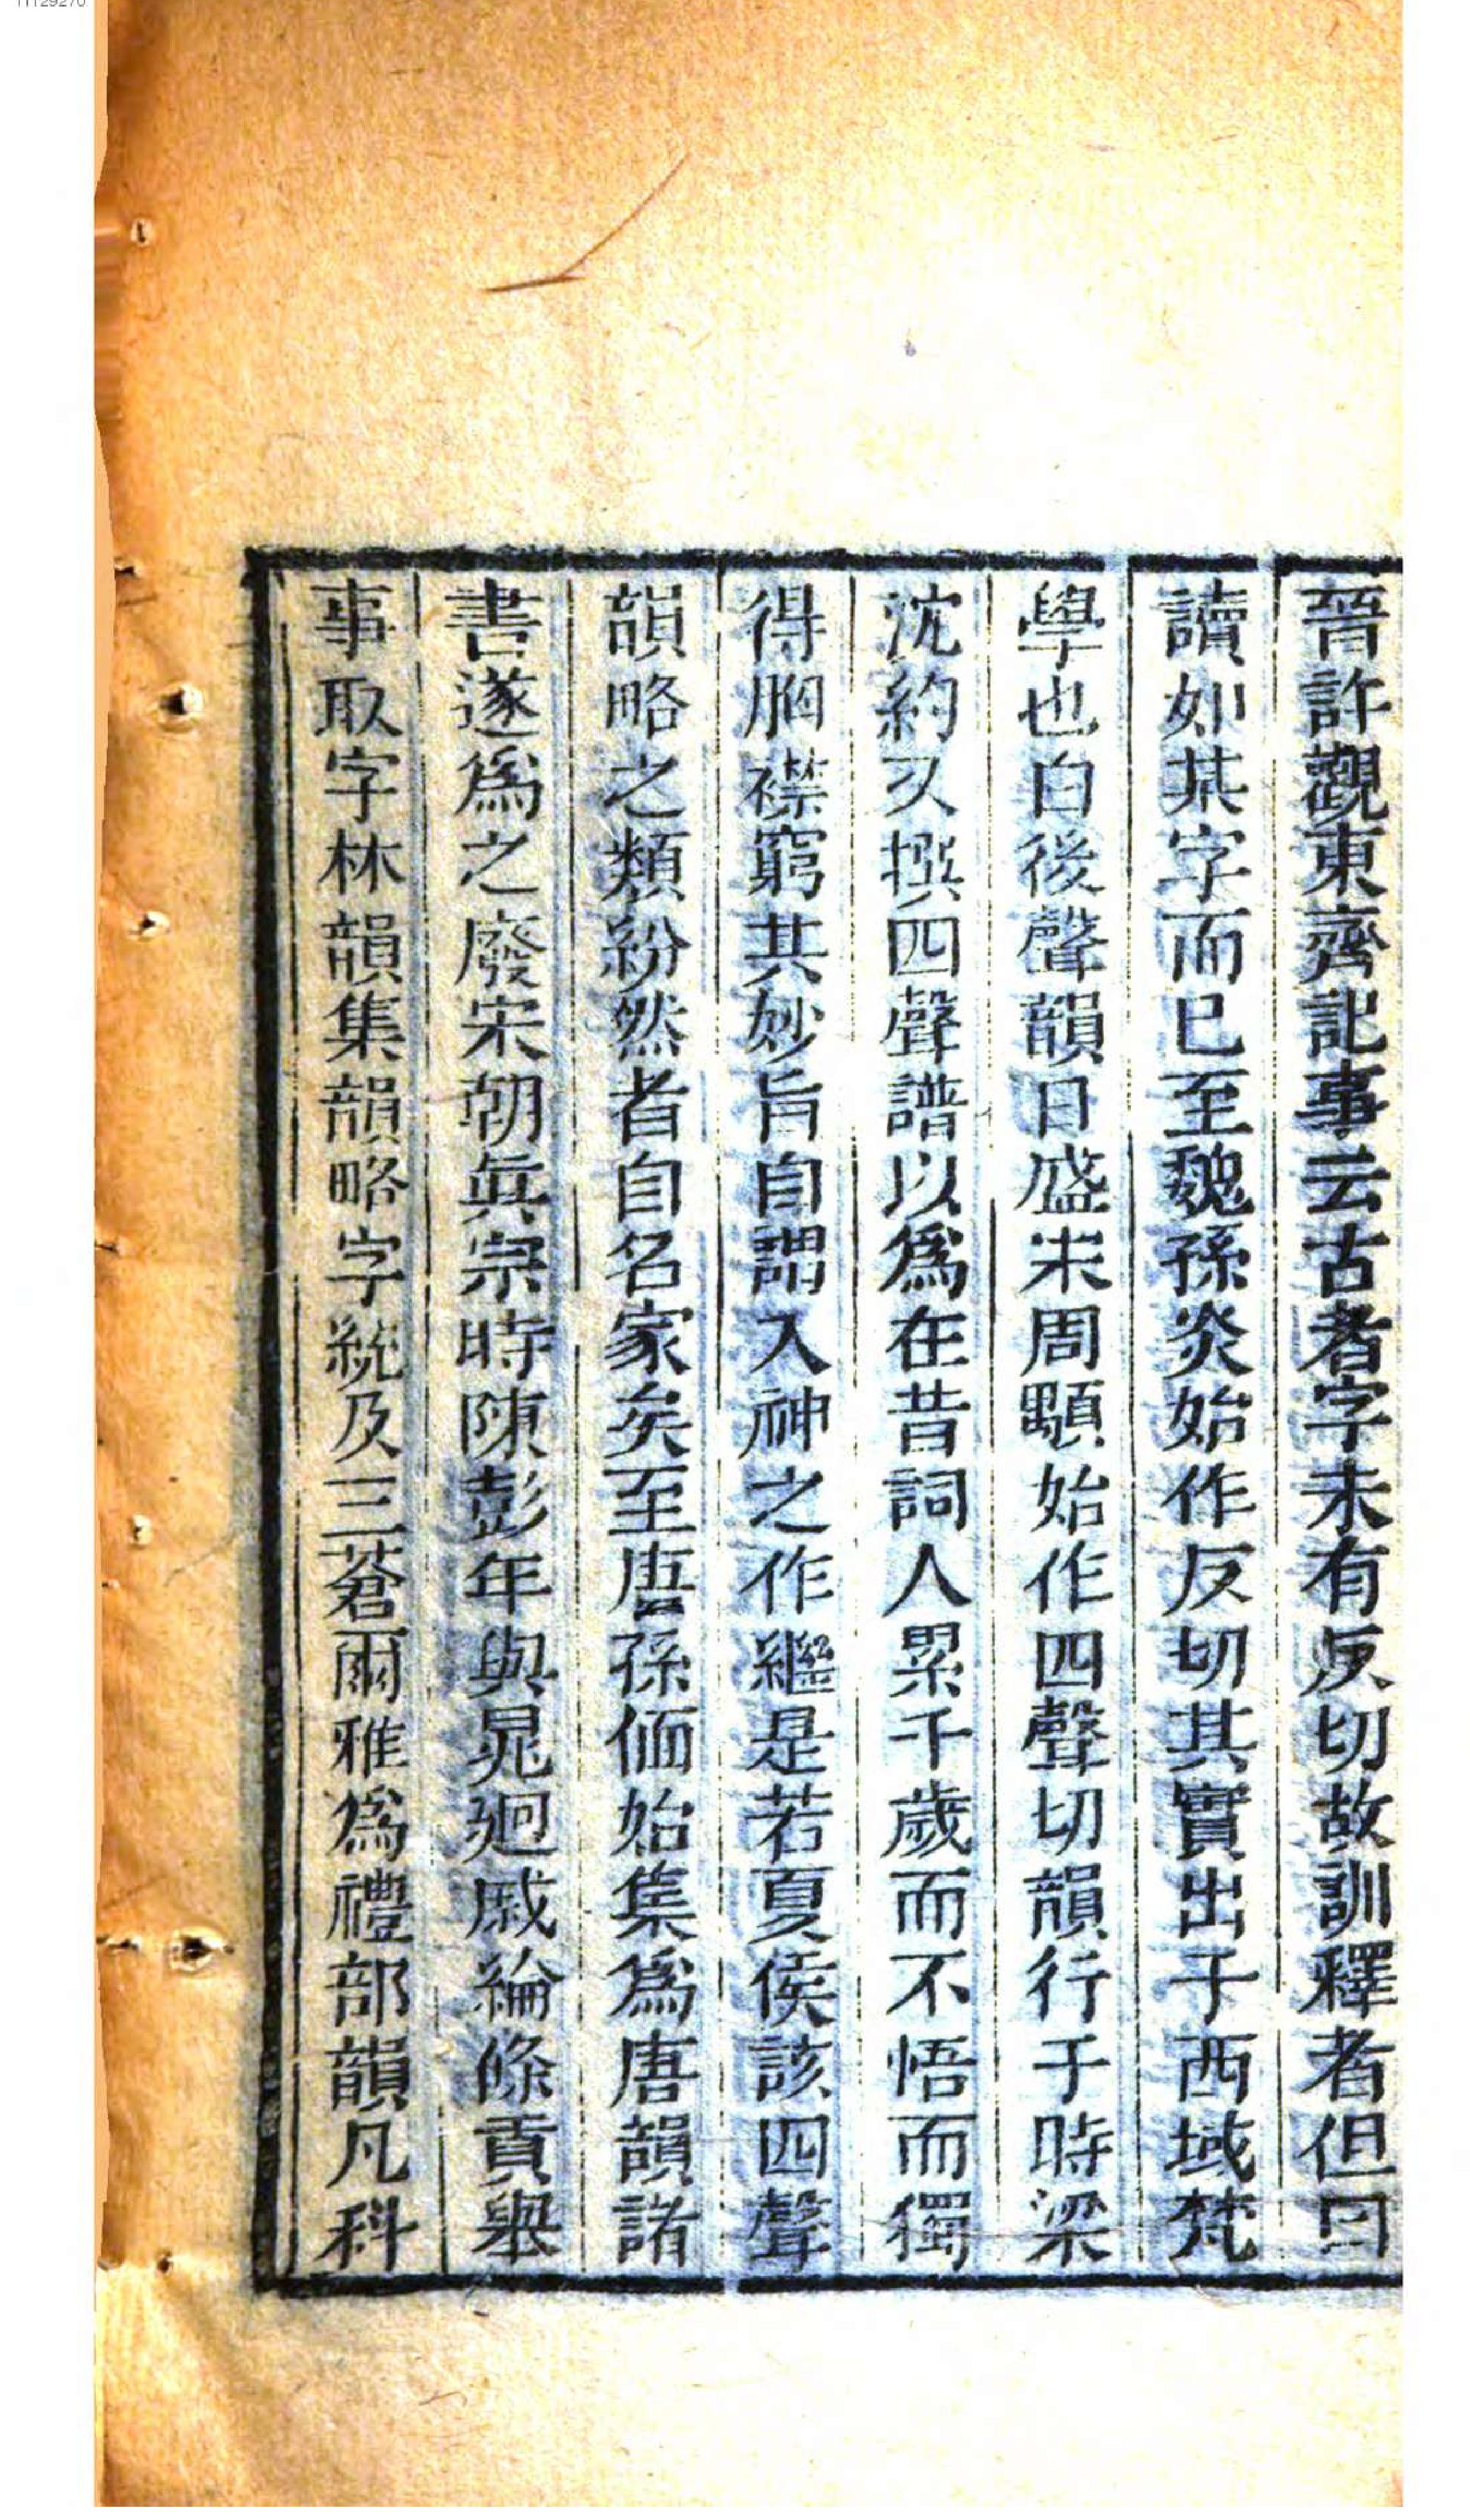 晉許觀東齊記事云古者字未有反切故訓釋者但曰
讀如某字而已至魏孫炎始作反切其實出于西域梵
學也自後聲韻日盛宋周顒始作四聲切韻行于時梁
沈約又撰四聲譜以爲在昔詞人累千歲而不悟而獨
得胸襟窮其妙旨自謂入神之作繼是若夏侯該四聲
韻略之類紛然者自名家矣至唐孫愐始集爲唐韻諸
書遂爲之廢宋朝眞宗時陳彭年與晁迥戚綸條貢舉
事取字林韻集韻略字統及三蒼爾雅爲禮部韻凡科
11129270